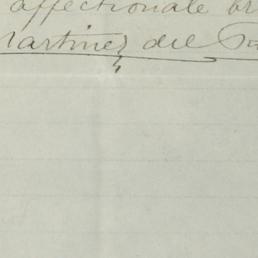 affectionate br
Martinez del